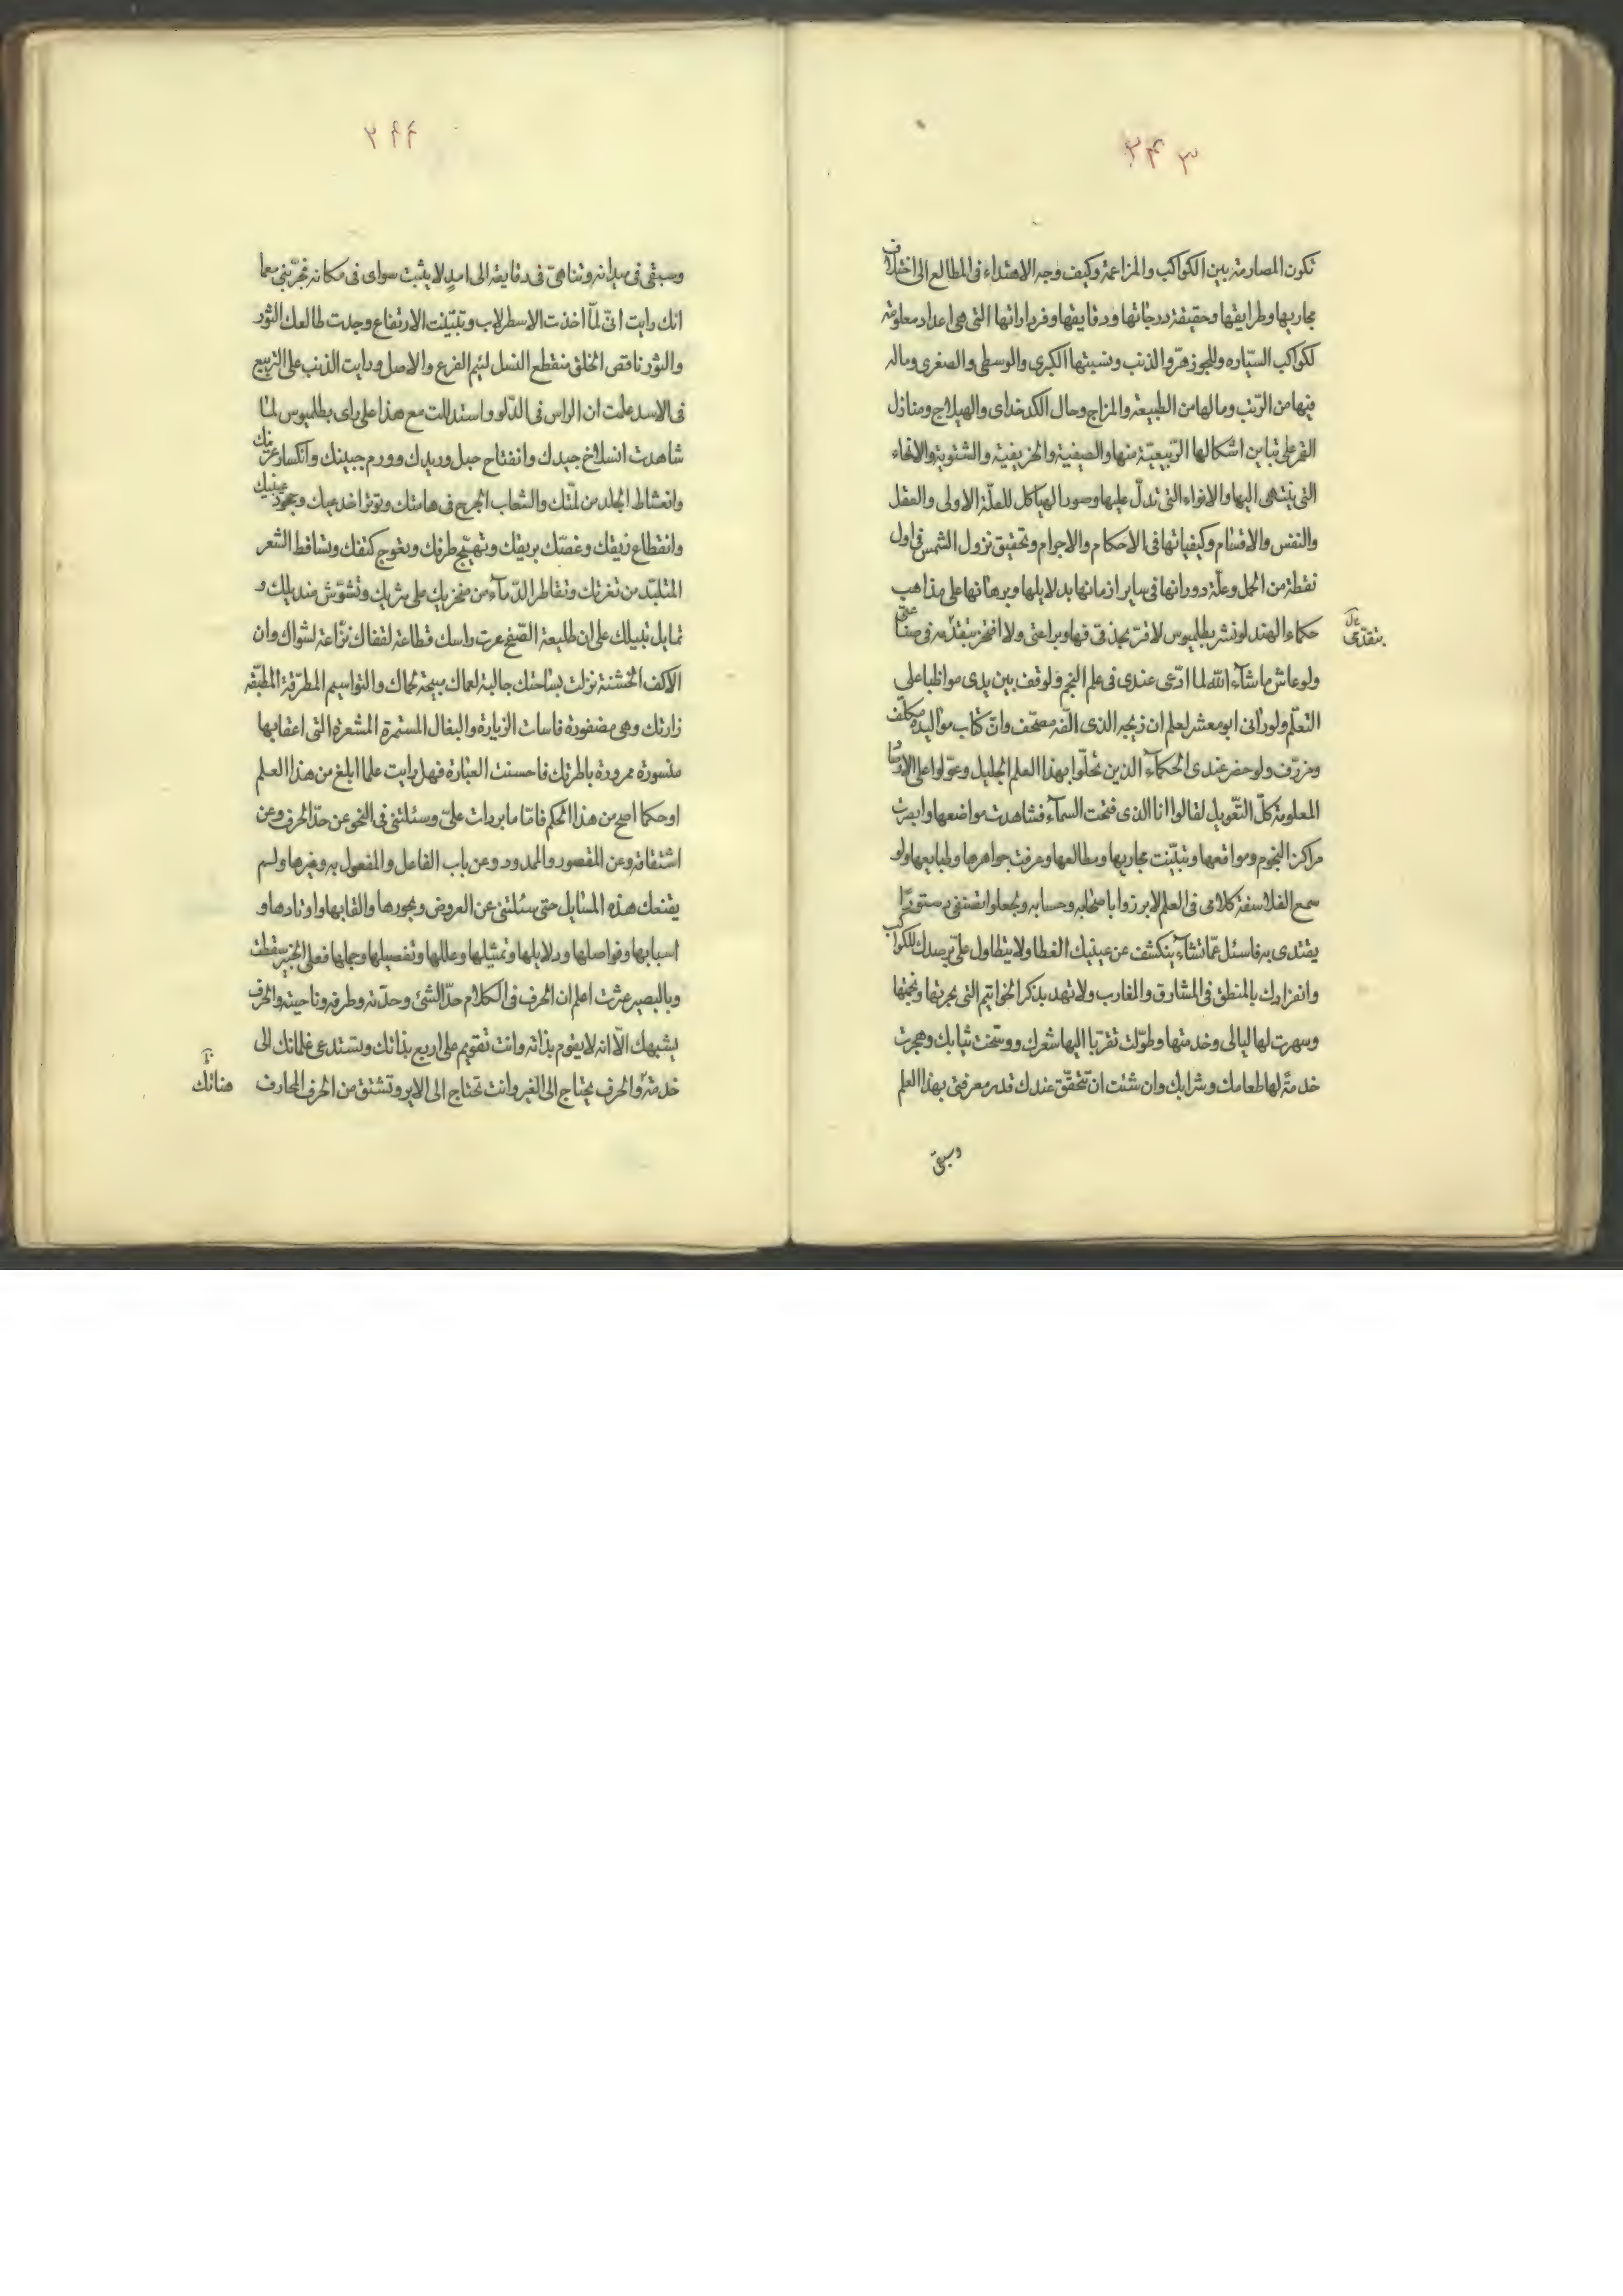 ٢٤٣
تكون المصارمة بين الكواكب والمزاعمة وكيف وجه الاهتداء فى المطالع الى اختلاف
مجاريها وطرايقها وحقيقة درجاتها ودقايقها وفرداراتها التى هى اعداد معلومة
لكواكب السيّاره وللجوزهر والذنب ونسبتها الكبرى والوسطى والصغرى وماله
فيها من الرتب ومالها من الطبيعة والمزاج وحال الكدخداى والهيلاج ومنازل
القمر على تباين اشكالها الرّبيعيّة منها والصيفية والخريفية والشتوية والانحاء
التى ينتهى اليها والانواء التى تدلّ عليها وصور الهياكل للعلّة الاولى والعقل
والنفس والاقسام وكيفياتها فى الاحكام والاجرام وتحقيق نزول الشمس فى اول
نقطة من الحمل وعلّة دورانها فى ساير ازمانها بدلايلها وبرهانها على مذاهب
حكماء الهند لو نشر بطلميوس لاقرّ بحذقى فيها وبراعتى ولا افتخر بتقدّمه فى صناعتى
بتقدّمى
ولو عاش ما شآء الله لما ادّعى عندى فى علم النجم ولوقف بين يدى مواظبا على
التعلّم ولو رآنى ابو معشر لعلم ان زيجه الذى الّفه مصحّف وانّ كتاب مواليده مكلّف
ومزرّف ولو حضر عندى الحكمآء الذين تحلّوا بهذا العلم الجليل وعوّلوا على
المعلومة كلّ التّعويل لقالوا انا الذى فتحت السمآء فشاهدت مواضعها وابصرت
مراكز النجوم ومواقعها وتبيّنت مجاريها ومطالعها وعرفت جواهرها وطبايعها ولو
سمع الفلاسفة كلامى فى العلم لابرزوا وحسابه وجعلوا دستورًا
يقتدى به فاسئل عمّا تشآء ينكشف عن عينيك الغطا ولا يتطاول علىّ برصدك للكواكب
وانفرادك بالمنطق فى المشارق والمغارب ولا تهدد بذكر الخواتيم التى بخرتها ونجمتها
وسهرت لها ليالى وخدمتها وطوّلت تقرّبا اليها شعرك ووسّخت ثيابك وهجرت
خدمةً لها طعامك وشرابك وان شئت ان تتحقّق عندك قدر معرفتى بهذا العلم
وسبقى
٢٤٤
وسبقى فى ميدانه وتناهىّ فى دقايقه الى امدٍ لا يثبت سواى فى مكانه فجرّبنى معما
انك رايت انّى لمّا اخذت الاسطرلاب وتبيّنت الارتفاع وجدت طالعك الثور
والثور ناقص الخلق منقطع النسل لئيم الفرع والاصل ورايت الذنب على التربيع
فى الاسد علمت ان الراس فى الدّلو واستدللت مع هذا على راى بطلميوس لمّا
شاهدت انسلاخ جيدك وانفتاح حبل وريدك وورم جبينك وانكسار عرنينك
وانعشاط الجلد من لمّتك وانشعاب الجرح فى هامتك وتوتر اخدعيك وجحوظ عينيك
وانقطاع زيقك وغصّتك بريقك وتهيّج طرفك وتعوج كتفك وتساقط الشعر
المتلبّد من نغرتك وتقاطر الدّمآء من منخريك على وتشوّش منديلك و
تمايل على ان طليعة الصّفع عرت راسك قطاعة لقفاك نزّاعة لشواك وان
الاكف الخشنة نزلت بساحتك جالبة لعماك مبيحة لحماك والتواسيم المطرقة المطبّقه
زارتك وهى مضفورة فاسات الزيارة والبغال المستمرة المشعرة التى اعقابها
منسورة ممرودة باطرتك فاحسنت العبارة فهل رايت علما ابلغ من هذا العلم
او حكما اصح من هذا الحكم فامّا ما بردات علىّ وسئلتنى فى النحو عن حدّ الحرف وعن
اشتقاقه وعن المقصور والممدود وعن باب الفاعل والمفعول به وغيرها ولم
يقنعك هذه المسايل حتى سئلتنى عن العروض وبحورها والقابها واوتادها و
اسبابها وفواصلها ودلايلها وتمثيلها وعللها وتفصيلها وجملها فعلى الخبير سقطت
وبالبصير عثرت اعلم ان الحرف فى الكلام حدّ الشئ وحدّته وطرفه وناحيته والحرف
يشبهك الّا انه لا يقوم بذاته وانت تقويم على اربع بذاتك وتستدعى غلمانك الى
خدمة والحرف يحتاج الى الغير وانت تحتاج الى الاير وتشتق من الحرف المحارف
هناتك